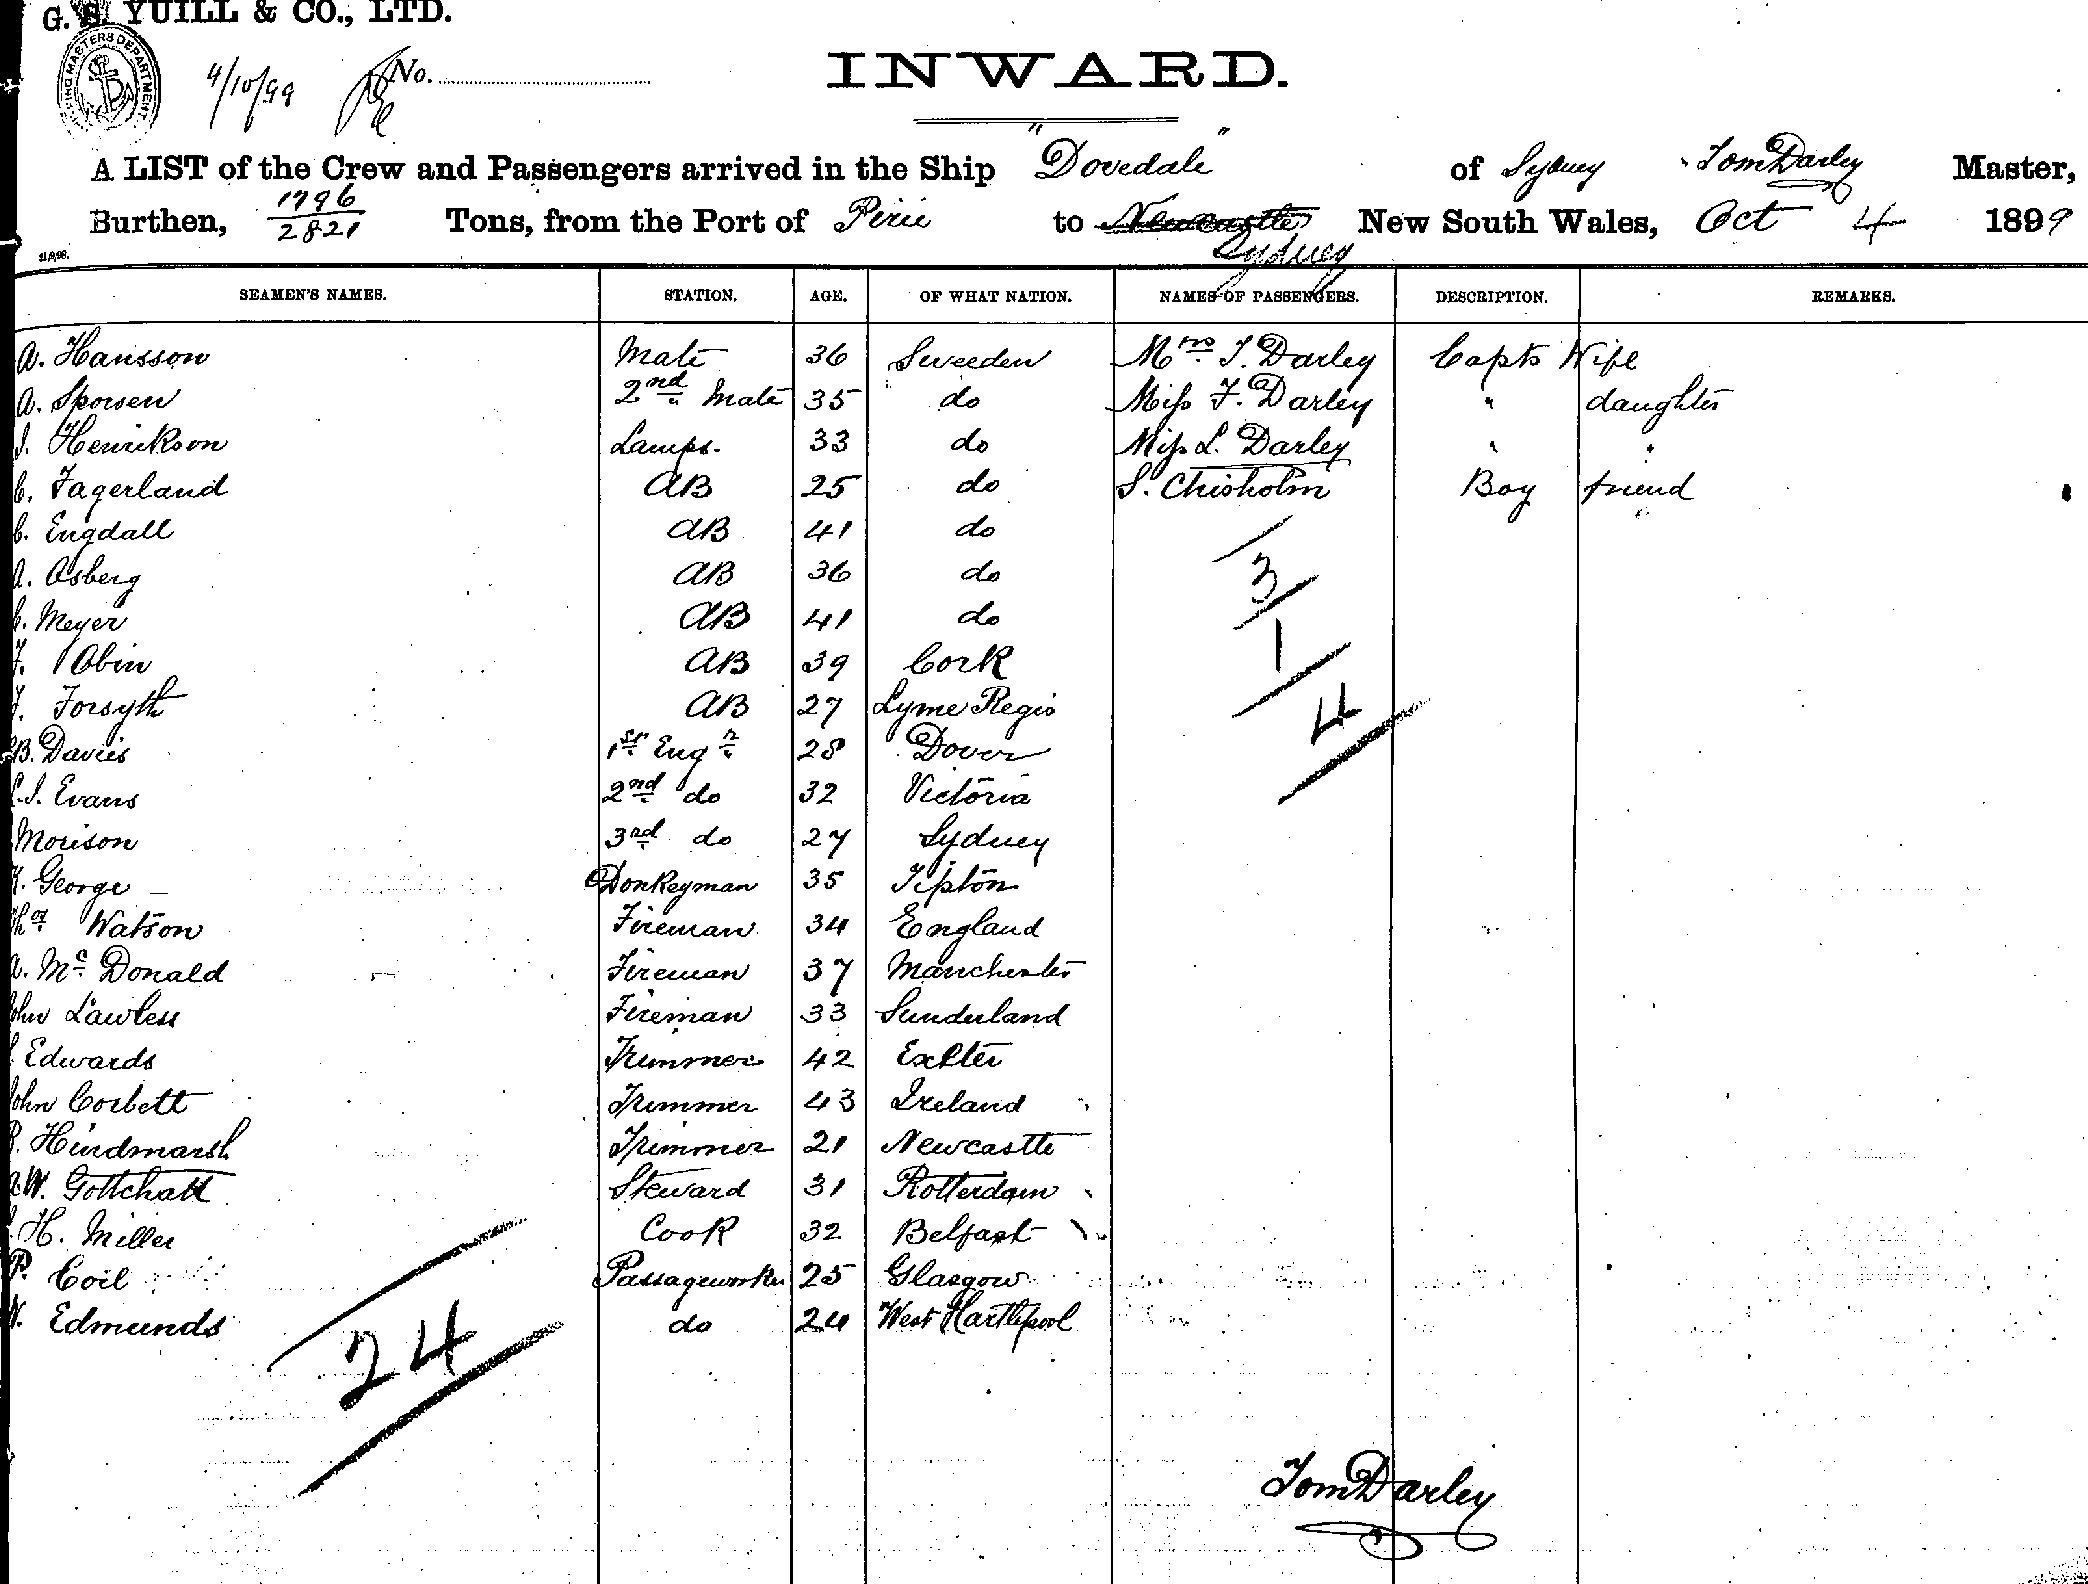 G. S. YUILL & CO., LTD.
4/10/99 No.
INWARD.
A LIST of the Crew and Passengers arrived in the Ship "Dovedale" of Sydney Tom Darley Master,
Burthen, 1796/2821 Tons, from the Port of Pirie to Newcastle Sydney New South Wales, Oct 4 1899
SEAMEN'S NAMES. STATION. AGE. OF WHAT NATION. NAMES OF PASSENGERS. DESCRIPTION. REMARKS.
A. Hansson Mate 36 Sweeden Mrs T. Darley Capts Wife
A. Sporsen 2nd Mate 35 do Miss F. Darley " daughter
Henrikson Lamps. 33 do Miss L. Darley " "
C. Fagerland AB 25 do S. Chisholm Boy friend
C. Engdall AB 41 do
A. Osberg AB 36 do
C. Meyer AB 41 do
Obin AB 39 Cork
Forsyth AB 27 Lyme Regis
B. Davies 1st Engr 28 Dover
Evans 2nd do 32 Victoria
Morison 3rd do 27 Sydney
George Donkeyman 35 Tipton
Thos Watson Fireman 34 England
A. McDonald Fireman 37 Manchester
John Lawless Fireman 33 Sunderland
Edwards Trimmer 42 Exeter
John Corbett Trimmer 43 Ireland
Hindmarsh Trimmer 21 Newcastle
W. Gottchalt Steward 31 Rotterdam
H. Miller Cook 32 Belfast
P. Coil Passageworker 25 Glasgow
W. Edmunds do 24 West Hartlepool
3
1
4
24
Tom Darley